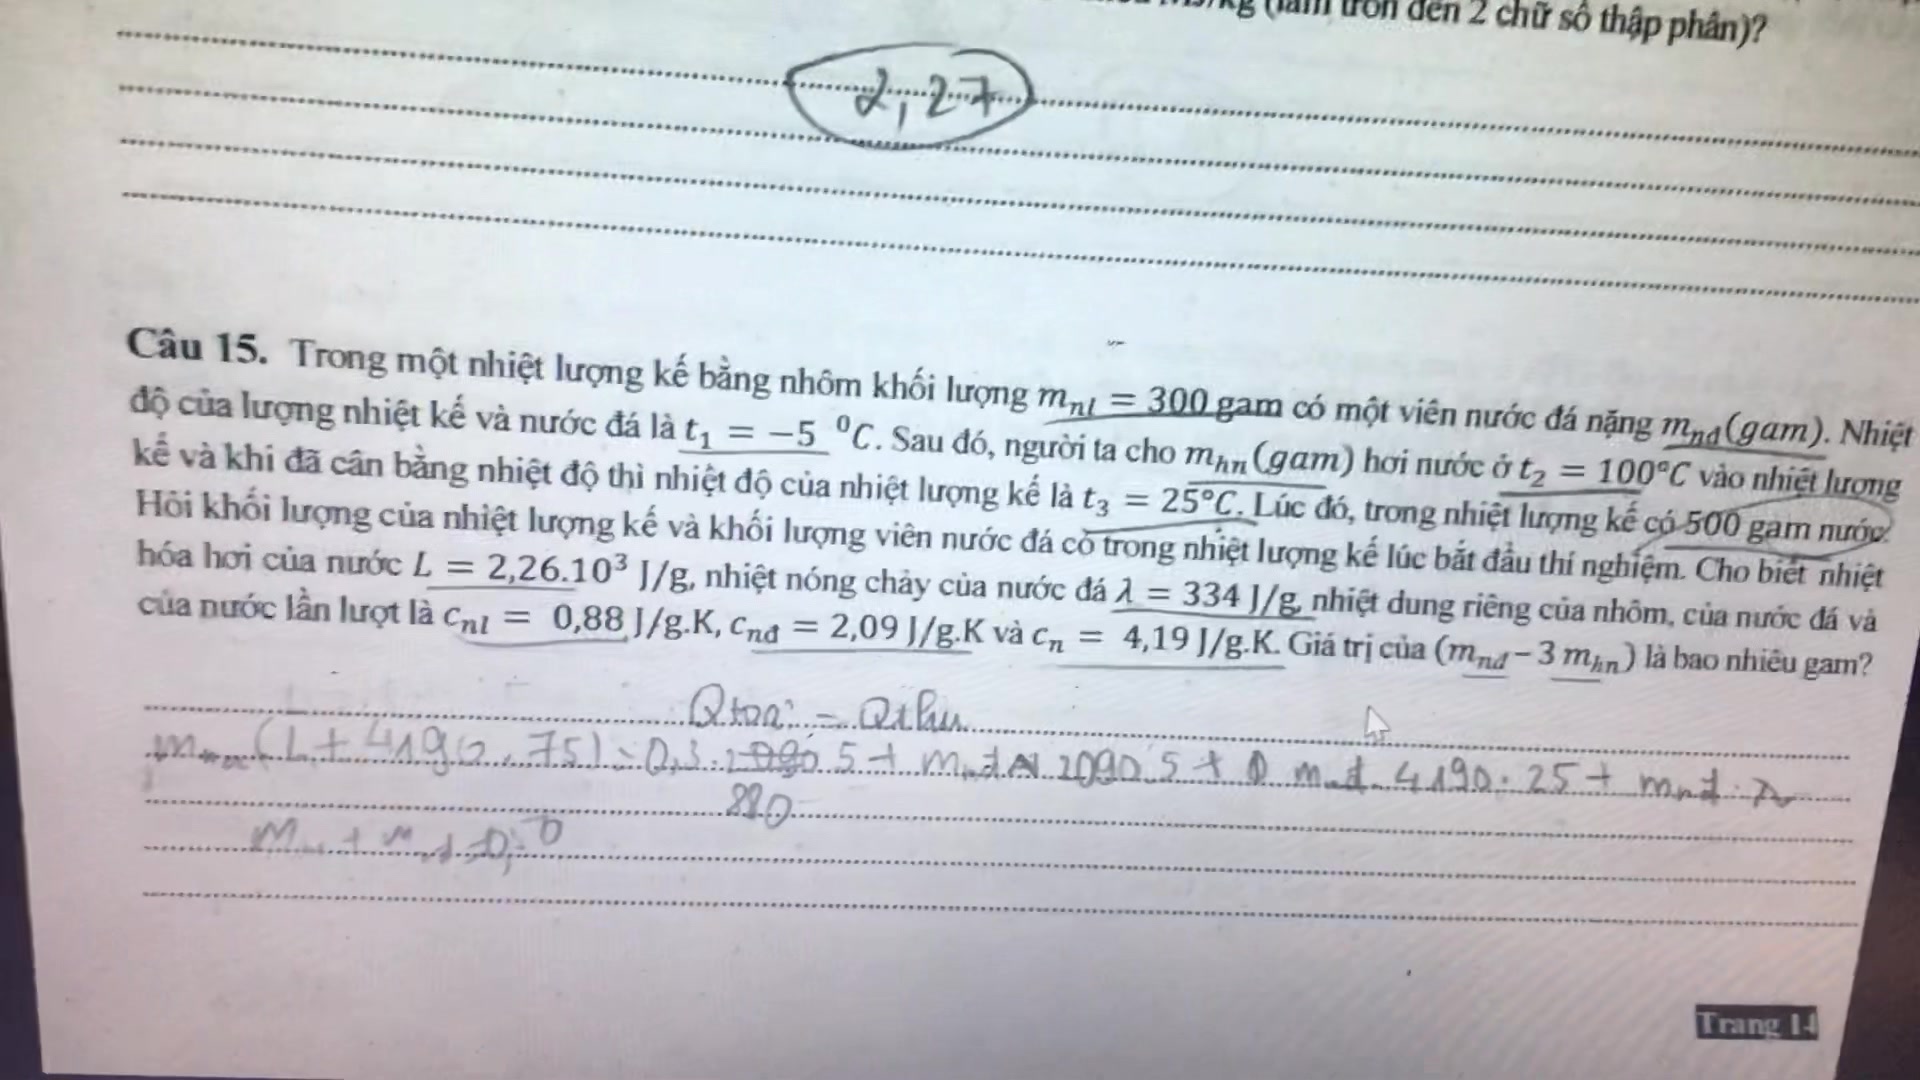 (làm tròn đến 2 chữ số thập phân)?
2,27
Câu 15. Trong một nhiệt lượng kế bằng nhôm khối lượng mₙₗ = 300 gam có một viên nước đá nặng mₙđ(gam). Nhiệt
độ của lượng nhiệt kế và nước đá là t₁ = −5 ⁰C. Sau đó, người ta cho mₕₙ(gam) hơi nước ở t₂ = 100°C vào nhiệt lượng
kế và khi đã cân bằng nhiệt độ thì nhiệt độ của nhiệt lượng kế là t₃ = 25°C. Lúc đó, trong nhiệt lượng kế có 500 gam nước.
Hỏi khối lượng của nhiệt lượng kế và khối lượng viên nước đá cò trong nhiệt lượng kế lúc bắt đầu thí nghiệm. Cho biết nhiệt
hóa hơi của nước L = 2,26.10³ J/g, nhiệt nóng chảy của nước đá λ = 334 J/g, nhiệt dung riêng của nhôm, của nước đá và
của nước lần lượt là cₙₗ = 0,88 J/g.K, cₙđ = 2,09 J/g.K và cₙ = 4,19 J/g.K. Giá trị của (mₙđ − 3 mₕₙ) là bao nhiêu gam?
Qtoả = Qthu
(L + 4190.75) = 0,3. 5 + mnđ 2090.5 + mnđ. 4190.25 + mnđ.λ
880
Trang 14